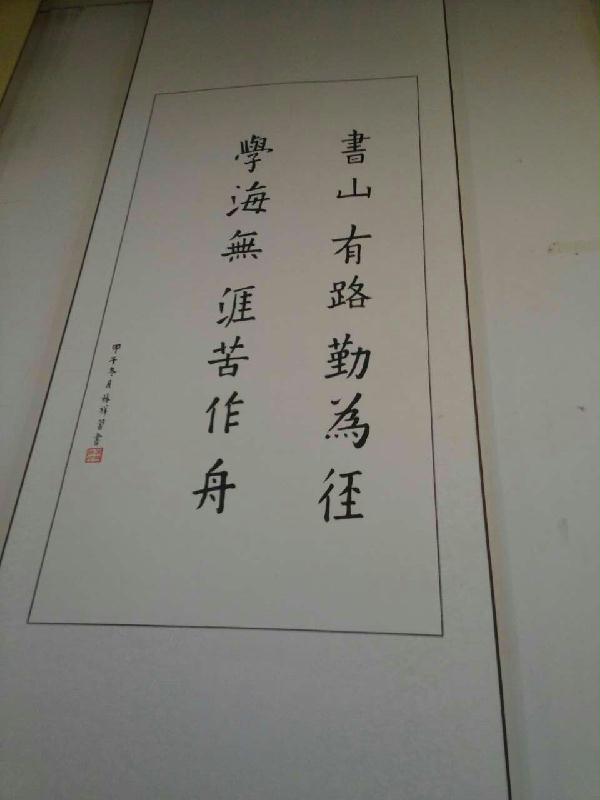 書山有路勤為徑
學海無涯苦作舟
甲午冬月 祥習書